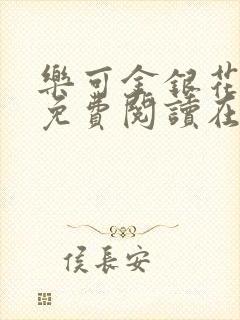 樂可金銀花
免費閱讀在
侯長安